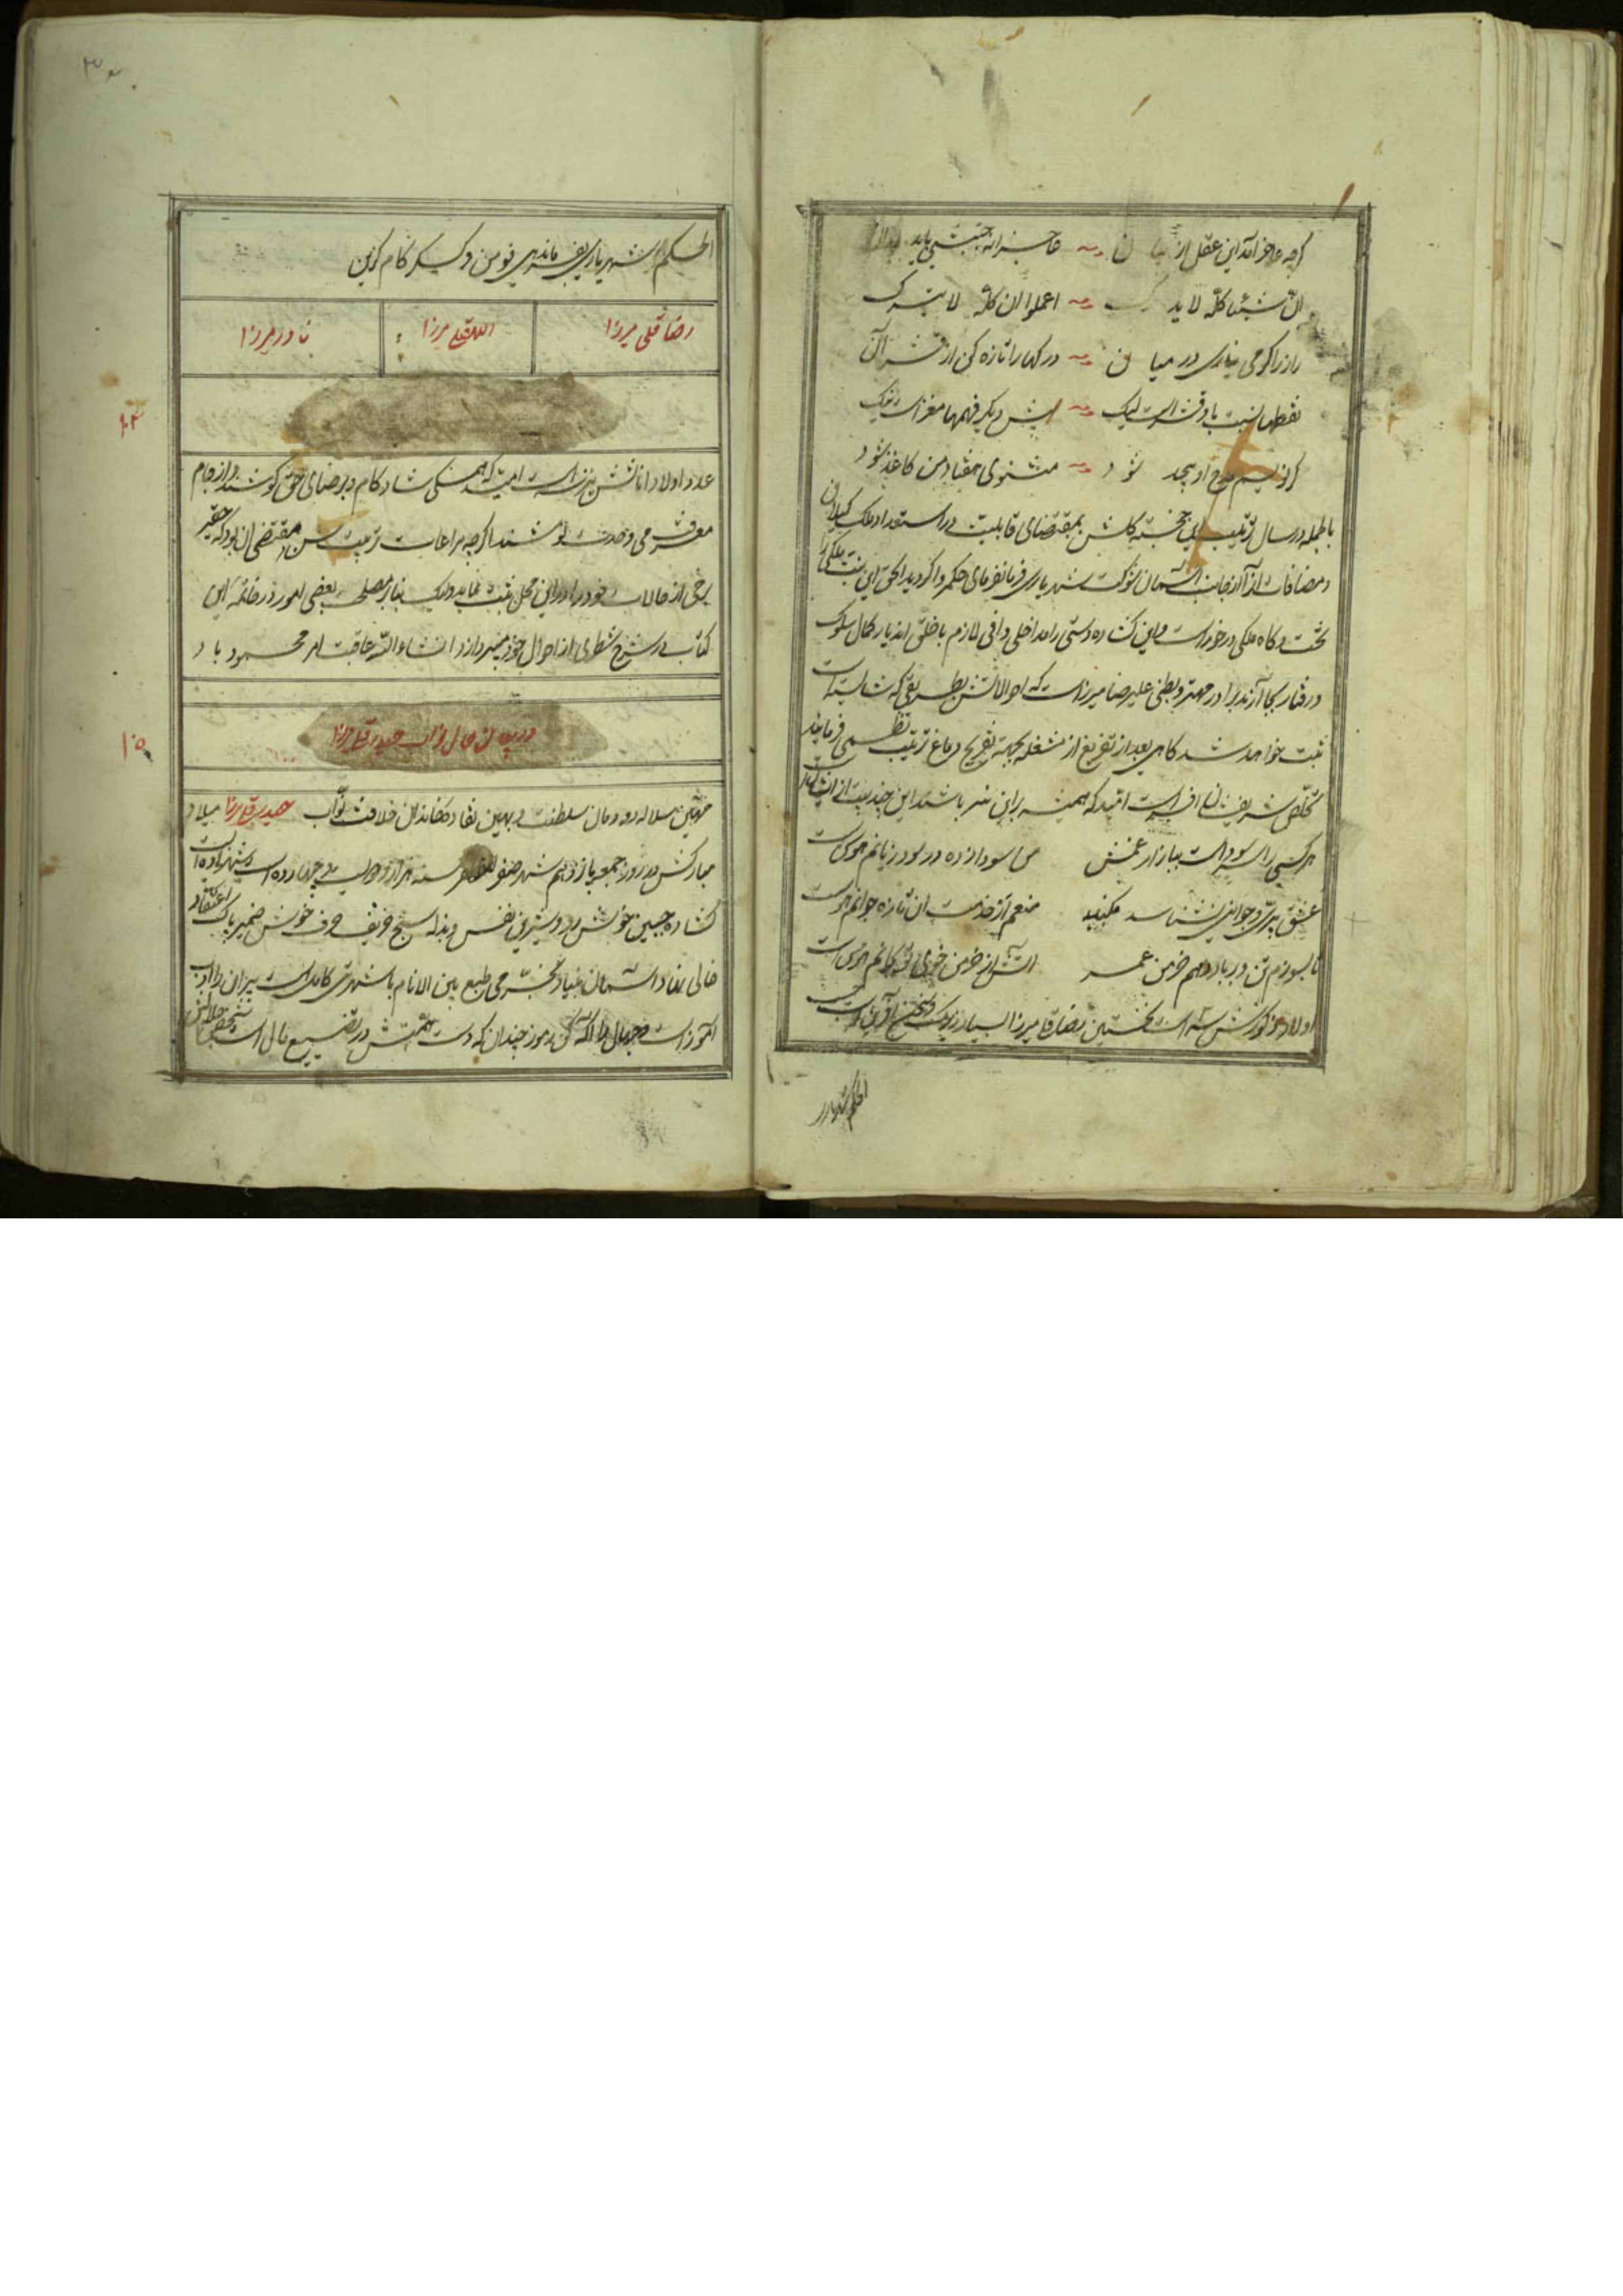 گرچه عاجز آمد این عقل از بیان عاجزانه جنبشی باید
ان شیئا کله لا یدرک اعلموا ان کله لا یترک
راز را گر می نیاری در میان درکها را تازه کن از قشر آن
نطقها نسبت باو قشر است لیک پیش دیگر فهمها مغز است نیک
گر نویسم شرح او بیحد شود مثنوی هفتاد من کاغذ شود
بالجمله در سال ترتیب این خجسته گلشن بمقتضای قابلیت و استعداد ملک گیلان
و مضافات از آن از جانب آسمان شوکت شهریاری فرمانفرمای حکمروا گردید الحق این
تخت و کاه ملکی در خور است و این گشاده دستی را مداخلی وافی لازم با خلق اندیار کمال سلوک
و رفتار بجا آرند برادر مهتر و بطنی علیرضا میرزاست که احوالاتش بطریقی که شایسته است
ثبت خواهد شد گاهی بعد از تفریغ از مشغله بجهة تفریح دماغ ترتیب نظمی فرمایند
تخلص شریفشان افسر است امید که همیشه براین سر باشند این چند بیت از ایشان
هر کسی را سر سوداست ببازار غمش من سودازده در سود زیانم هوس است
عشق پیری و جوانی نشناسد مکنید منعم از خدمت آن تازه جوانم هوس است
تا بسوزم تن و بر باد دهم خرمن عمر آتش از خرمن خوی تو بجانم هوس است
اولاد ذکورش سه است نخستین رضاقلی میرزا بسیار زیرک و
الحکم شهریار
الحکم شهریاری بفرماندهی فومن و کسکر کام گزین
رضا قلی میرزا
اللهقلی میرزا
نادر میرزا
۱۰۴
عدد اولاد اناثش نیز سه است امید که همگی شادکام و برضای حق کوشند و از جام
معرفت می وحدت نوشند اگرچه مراعات ترتیب سن مقتضی آن بود که حقیر
برخی از حالات خود را در این محل ثبت نماید ولیک بنا بر مصلحت بعضی امور در خاتمه این
کتاب در شرح شطری از احوال خود میپردازد انشاء الله عاقبت امر محمود باد
۱۰۵
در بیان حال نواب حیدر قلی میرزا
مهین سلاله دودمان سلطنت و بهین نقاده خاندان خلافت نواب حیدر قلی میرزا میلاد
مبارکش در روز جمعه یازدهم شهر صفر المظفر سنه هزار و دویست و چهارده است
گشاده جبین خوش رو و شیرین نفس و بذله سنج و حریف خوش ضمیر پاک اعتقاد
خالی از عناد آسمان بنیاد بخرمی طبع بین الانام با شهرتی کامل است پیران را ادب
آموز است و جهال را آگه کن رموز چندان که دست همتش در تضییع مال است